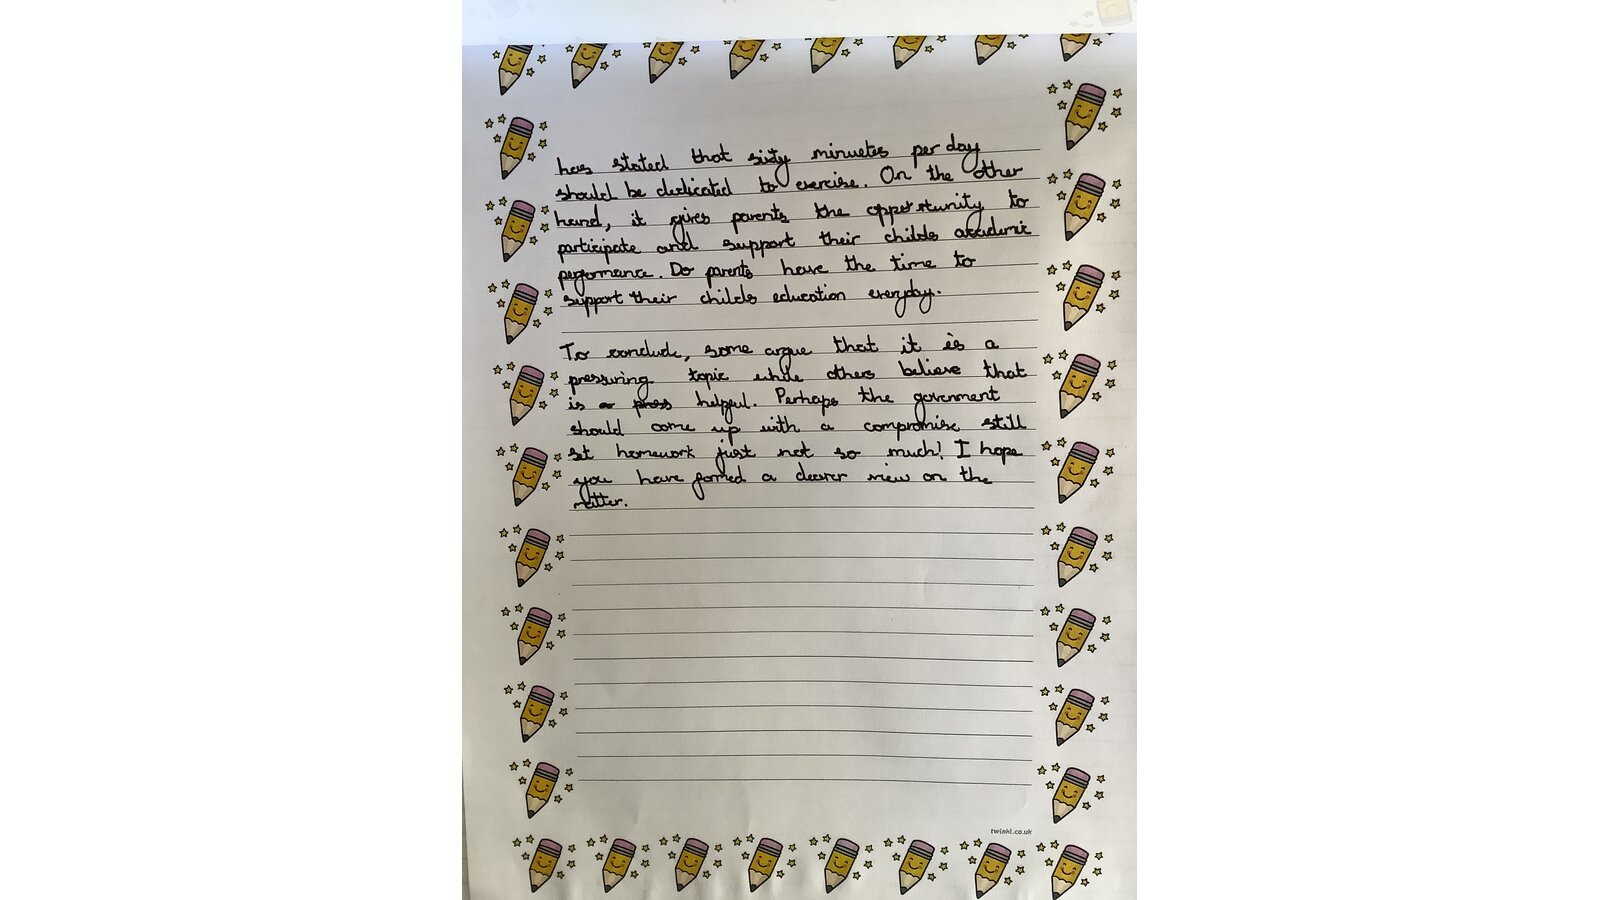 has stated that sixty minuetes per day
should be dedicated to exercise. On the other
hand, it gives parents the opportunity to
participate and support their childs academic
performance. Do parents have the time to
support their childs education everyday.
To conclude, some argue that it is a
pressuring topic while others believe that
is a press helpful. Perhaps the government
should come up with a compromise still
set homework just not so much! I hope
you have formed a clearer view on the
matter.
twinkl.co.uk